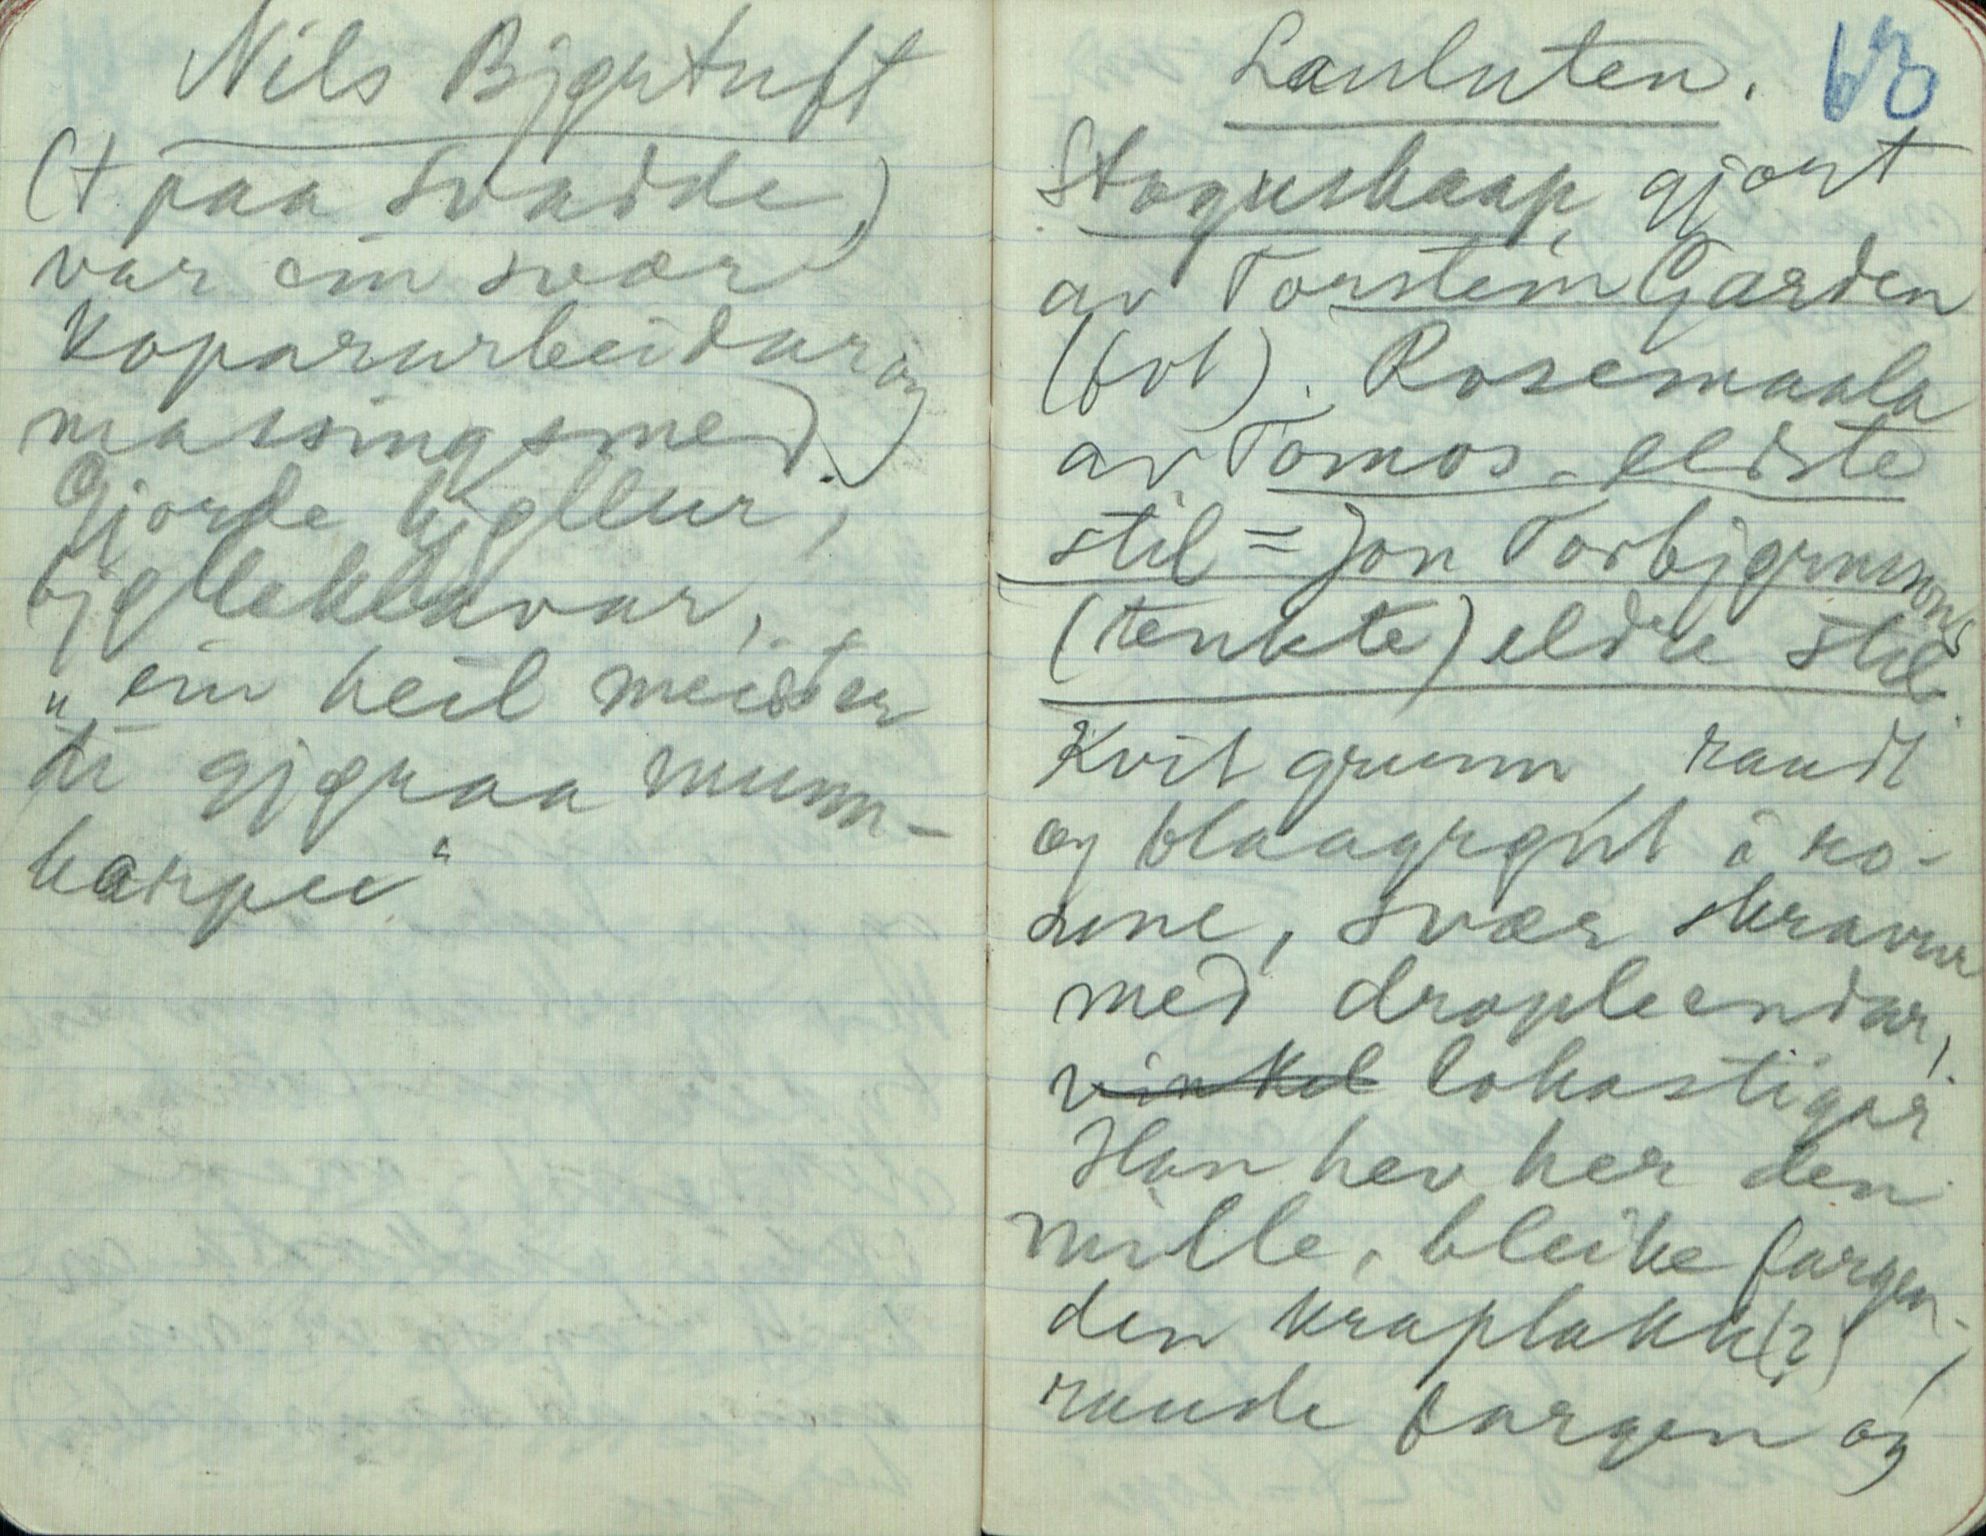 Nils Bjørtuft
(+ paa Svadde)
var ein svær
koparurbeidar og
massingsmed.
Gjorde bjøllur,
bjølleklavar,
„ein heil meister
ti gjøraa munn-
harpee"
Lauluten. 63
Stoguskaap, gjort
av Torstein Garden
(fot). Rosemaala
av Tomos - eldste
stil = Jon Torbjørnsons
(tenkte) eldre stil.
Kvit grunn, raudt
og blaagrønt i ro-
sune, svær skravur
med dropleendar,
vinkel lokastigar
Han hev her den
mille, bleike fargen,
den kraplakk(?)
raude fargen og